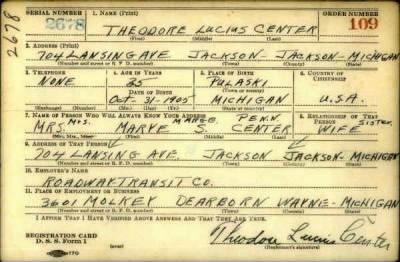 SERIAL NUMBER 1. Name (Print) ORDER NUMBER
2678 THEODORE LUCIUS CENTER 109
(First) (Middle) (Last)
2678
2. Address (Print)
704 LANSING AVE JACKSON - JACKSON - MICHIGAN
(Number and street or R. F. D. number) (Town) (County) (State)
3. Telephone 4. Age in Years 5. Place of Birth 6. Country of Citizenship
NONE 35 PULASKI
Date of Birth (Town or county)
Oct-31-1905 MICHIGAN U.S.A.
(Exchange) (Number) (Mo.) (Day) (Yr.) (State or country)
7. Name of Person Who Will Always Know Your Address 8. Relationship of That Person
MRS. MARGE. PENN. SISTER
MRS. MARYE S. CENTER WIFE
(Mr., Mrs., Miss) (First) (Middle) (Last)
9. Address of That Person
704 LANSING AVE. JACKSON JACKSON - MICHIGAN
(Number and street or R. F. D. number) (Town) (County) (State)
10. Employer's Name
ROADWAY TRANSIT CO.
11. Place of Employment or Business
3601 MOLKEY DEARBORN WAYNE - MICHIGAN
(Number and street or R. F. D. number) (Town) (County) (State)
I Affirm That I Have Verified Above Answers and That They Are True.
REGISTRATION CARD
D. S. S. Form 1 (over) Theodore Lucius Center
(Registrant's signature)